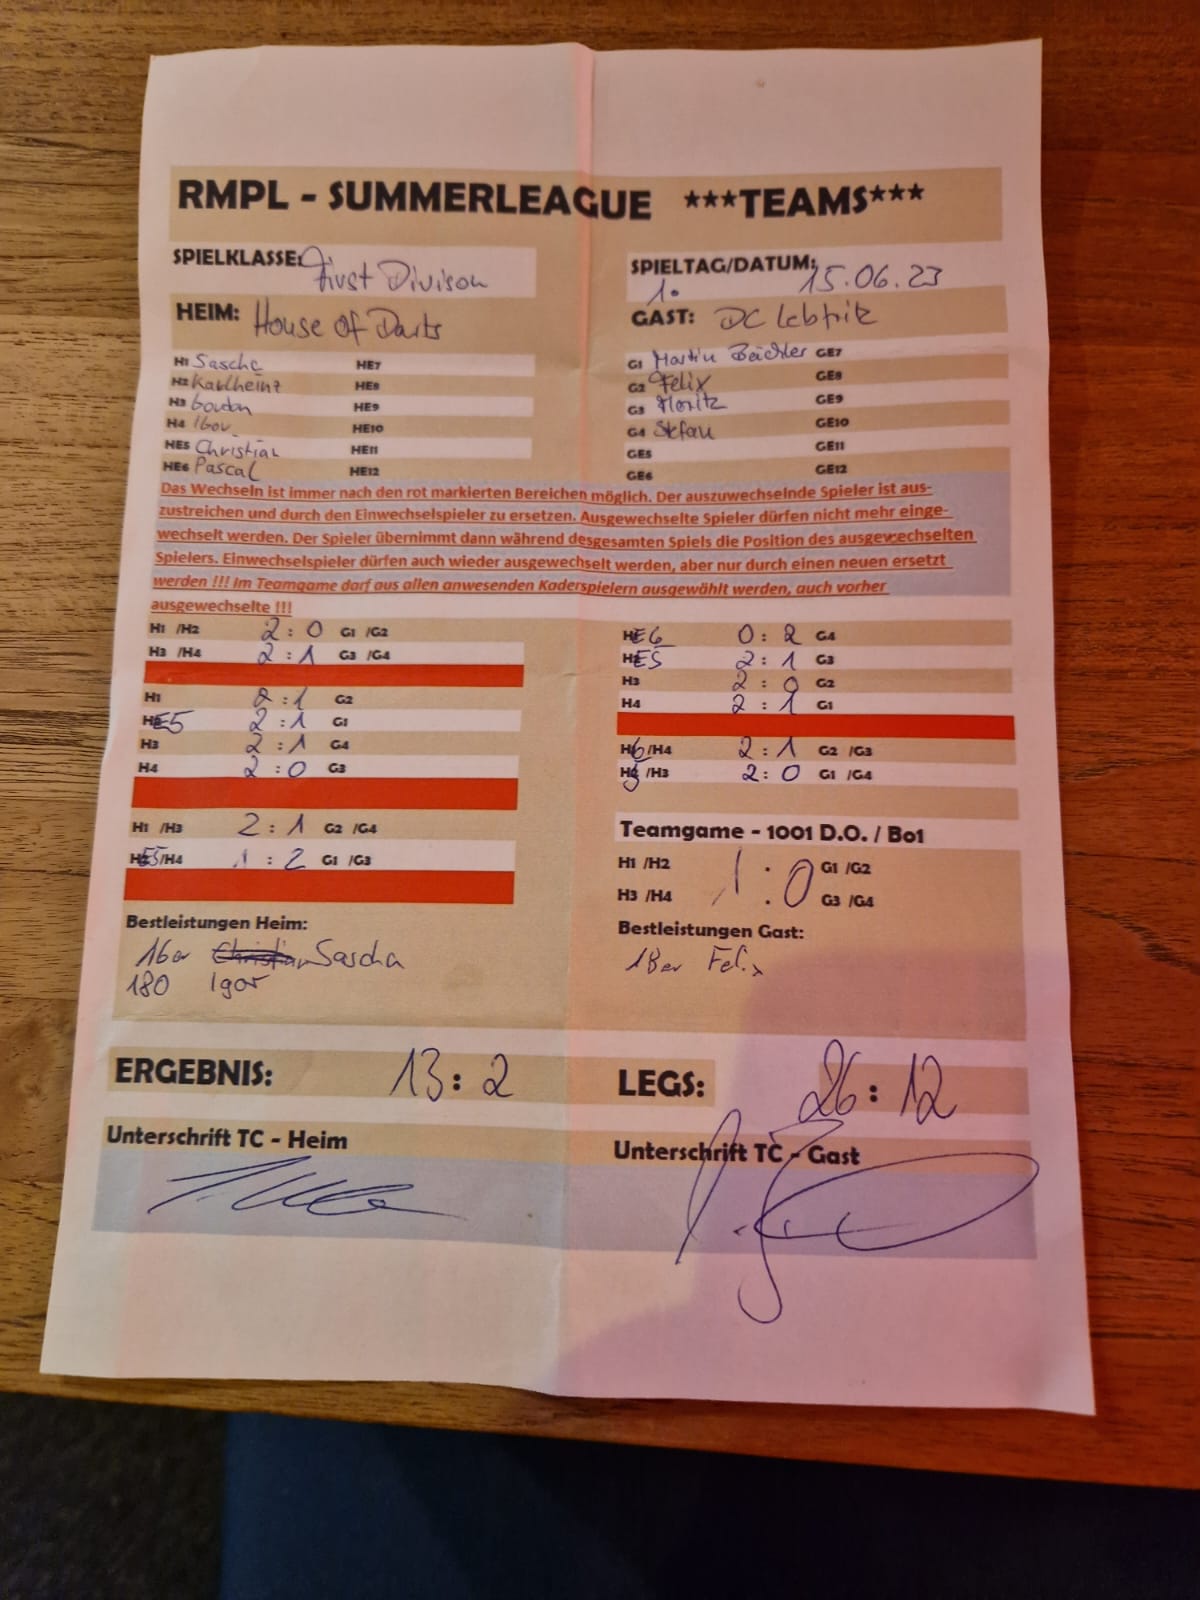 RMPL - SUMMERLEAGUE ***TEAMS***
SPIELKLASSE: First Divison
SPIELTAG/DATUM: 1. 15.06.23
HEIM: House of Darts
GAST: DC Lebfritz
H1 Sascha HE7
H2 Karlheinz HE8
H3 Gordon HE9
H4 Igor HE10
HE5 Christian HE11
HE6 Pascal HE12
G1 Martin Bächler GE7
G2 Felix GE8
G3 Moritz GE9
G4 Stefan GE10
GE5 GE11
GE6 GE12
Das Wechseln ist immer nach den rot markierten Bereichen möglich. Der auszuwechselnde Spieler ist aus-
zustreichen und durch den Einwechselspieler zu ersetzen. Ausgewechselte Spieler dürfen nicht mehr einge-
wechselt werden. Der Spieler übernimmt dann während desgesamten Spiels die Position des ausgewechselten
Spielers. Einwechselspieler dürfen auch wieder ausgewechselt werden, aber nur durch einen neuen ersetzt
werden !!! Im Teamgame darf aus allen anwesenden Kaderspielern ausgewählt werden, auch vorher
ausgewechselte !!!
H1 /H2 2 : 0 G1 /G2
H3 /H4 2 : 1 G3 /G4
H1 2 : 1 G2
HE5 2 : 1 G1
H3 2 : 1 G4
H4 2 : 0 G3
H1 /H3 2 : 1 G2 /G4
HE5/H4 1 : 2 G1 /G3
HE6 0 : 2 G4
HE5 2 : 1 G3
H3 2 : 0 G2
H4 2 : 1 G1
H6/H4 2 : 1 G2 /G3
H5/H3 2 : 0 G1 /G4
Teamgame - 1001 D.O. / Bo1
H1 /H2 1 : 0 G1 /G2
H3 /H4 G3 /G4
Bestleistungen Heim:
16er Christian Sascha
180 Igor
Bestleistungen Gast:
18er Felix
ERGEBNIS: 13 : 2
LEGS: 26 : 12
Unterschrift TC - Heim
Unterschrift TC - Gast